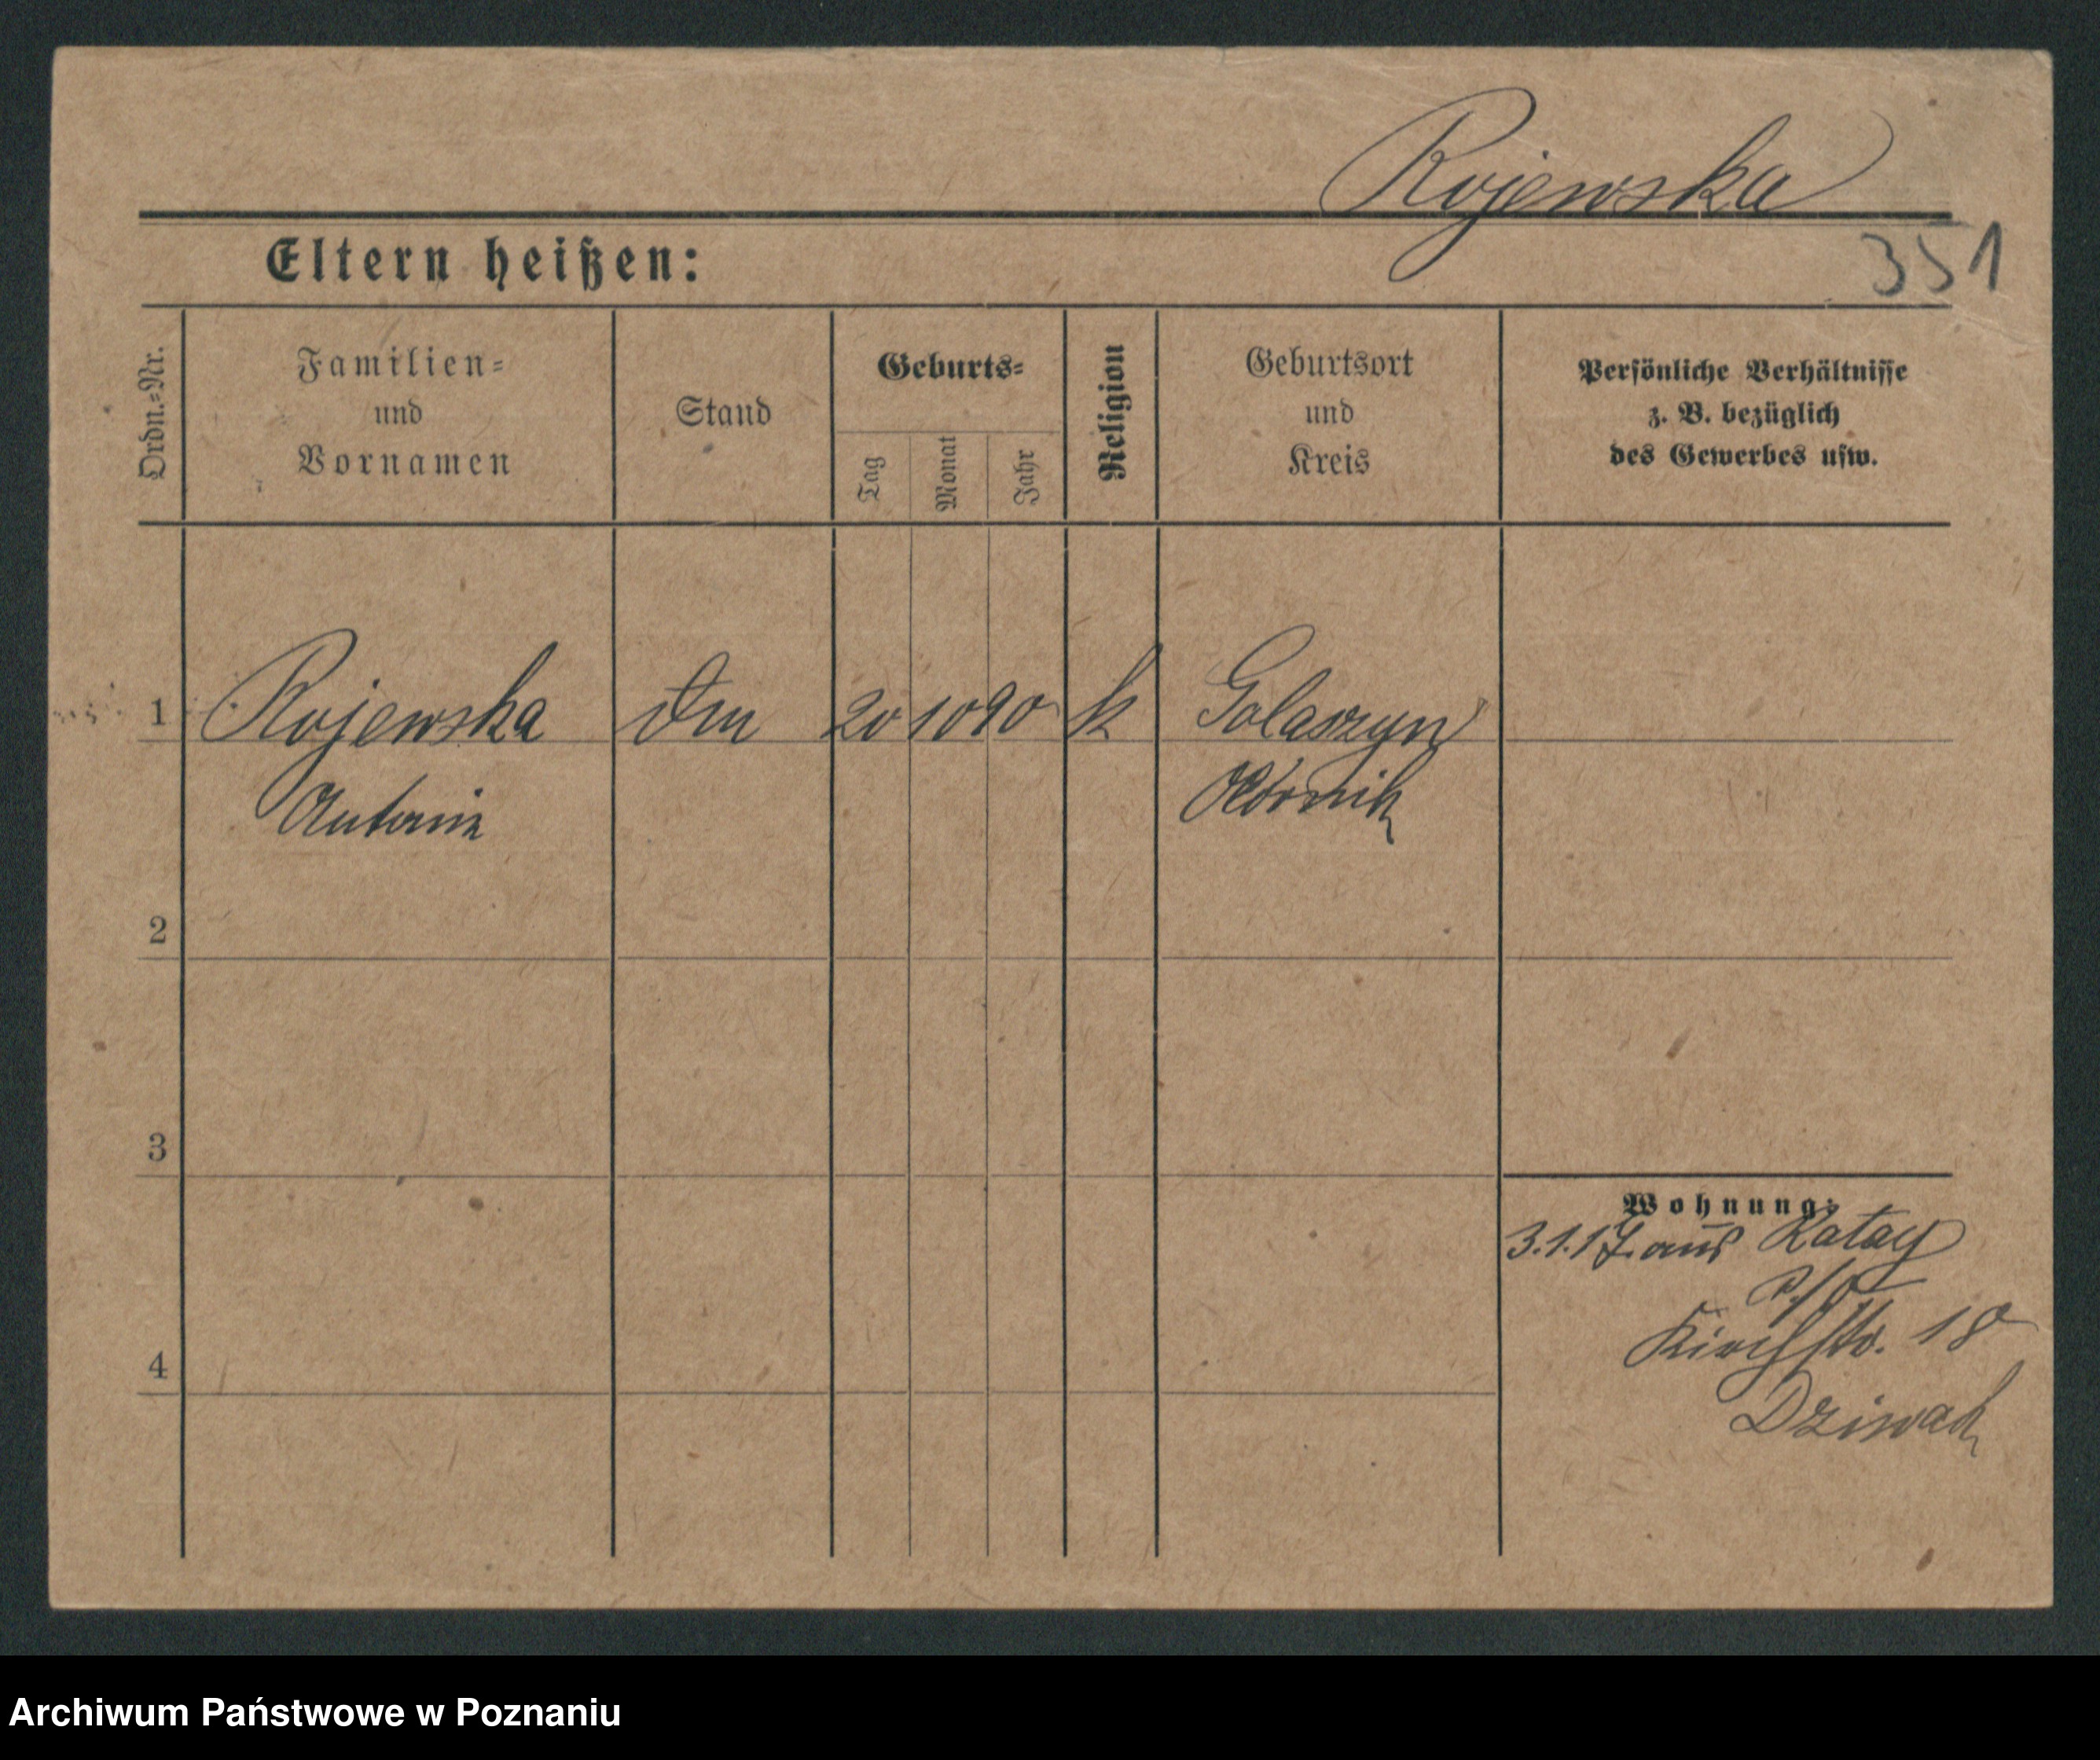 Rojewska
351
Eltern heißen:
Ordn.-Nr.
Familien-
und
Vornamen
Stand
Geburts-
Tag
Monat
Jahr
Religion
Geburtsort
und
Kreis
Persönliche Verhältnisse
z. B. bezüglich
des Gewerbes usw.
1 Rojewska 20 10 90 k Golaszyn
Antonie Obornik
2
3
Wohnung:
3.1.17. aus Ratay
Kirchstr. 18
4
Dziwak
Archiwum Państwowe w Poznaniu